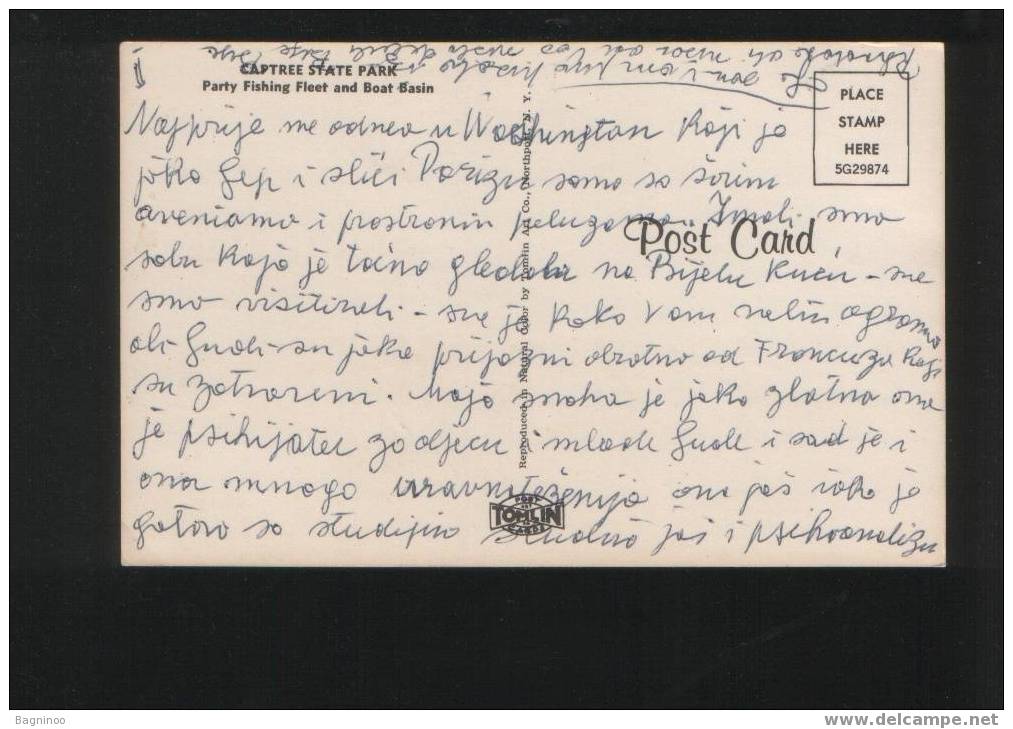 CAPTREE STATE PARK
Party Fishing Fleet and Boat Basin
PLACE
STAMP
HERE
5G29874
Najprije me odveo u Washington koji je
jako lijep i sliči Parizu samo sa širim
avenijama i prostranim peluzama. Imali smo
Post Card
sobu koja je točno gledala na Bijelu kuću - sve
smo visitirali - sve je kako Vam velim ogromno
ali ljudi su jako prijazni obratno od Francuza koji
su zatvoreni. Moja snaha je jako zlatna ona
je psihijater za djecu i mlade ljude i sad je i
ona mnogo uravnoteženija ona još iako je
gotova sa studijem studira još i psihoanalizu
Reproduced in Natural Color by Tomlin Art Co., Northport, N. Y.
POST
TOMLIN
CARDS
Bagninoo
www.delcampe.net